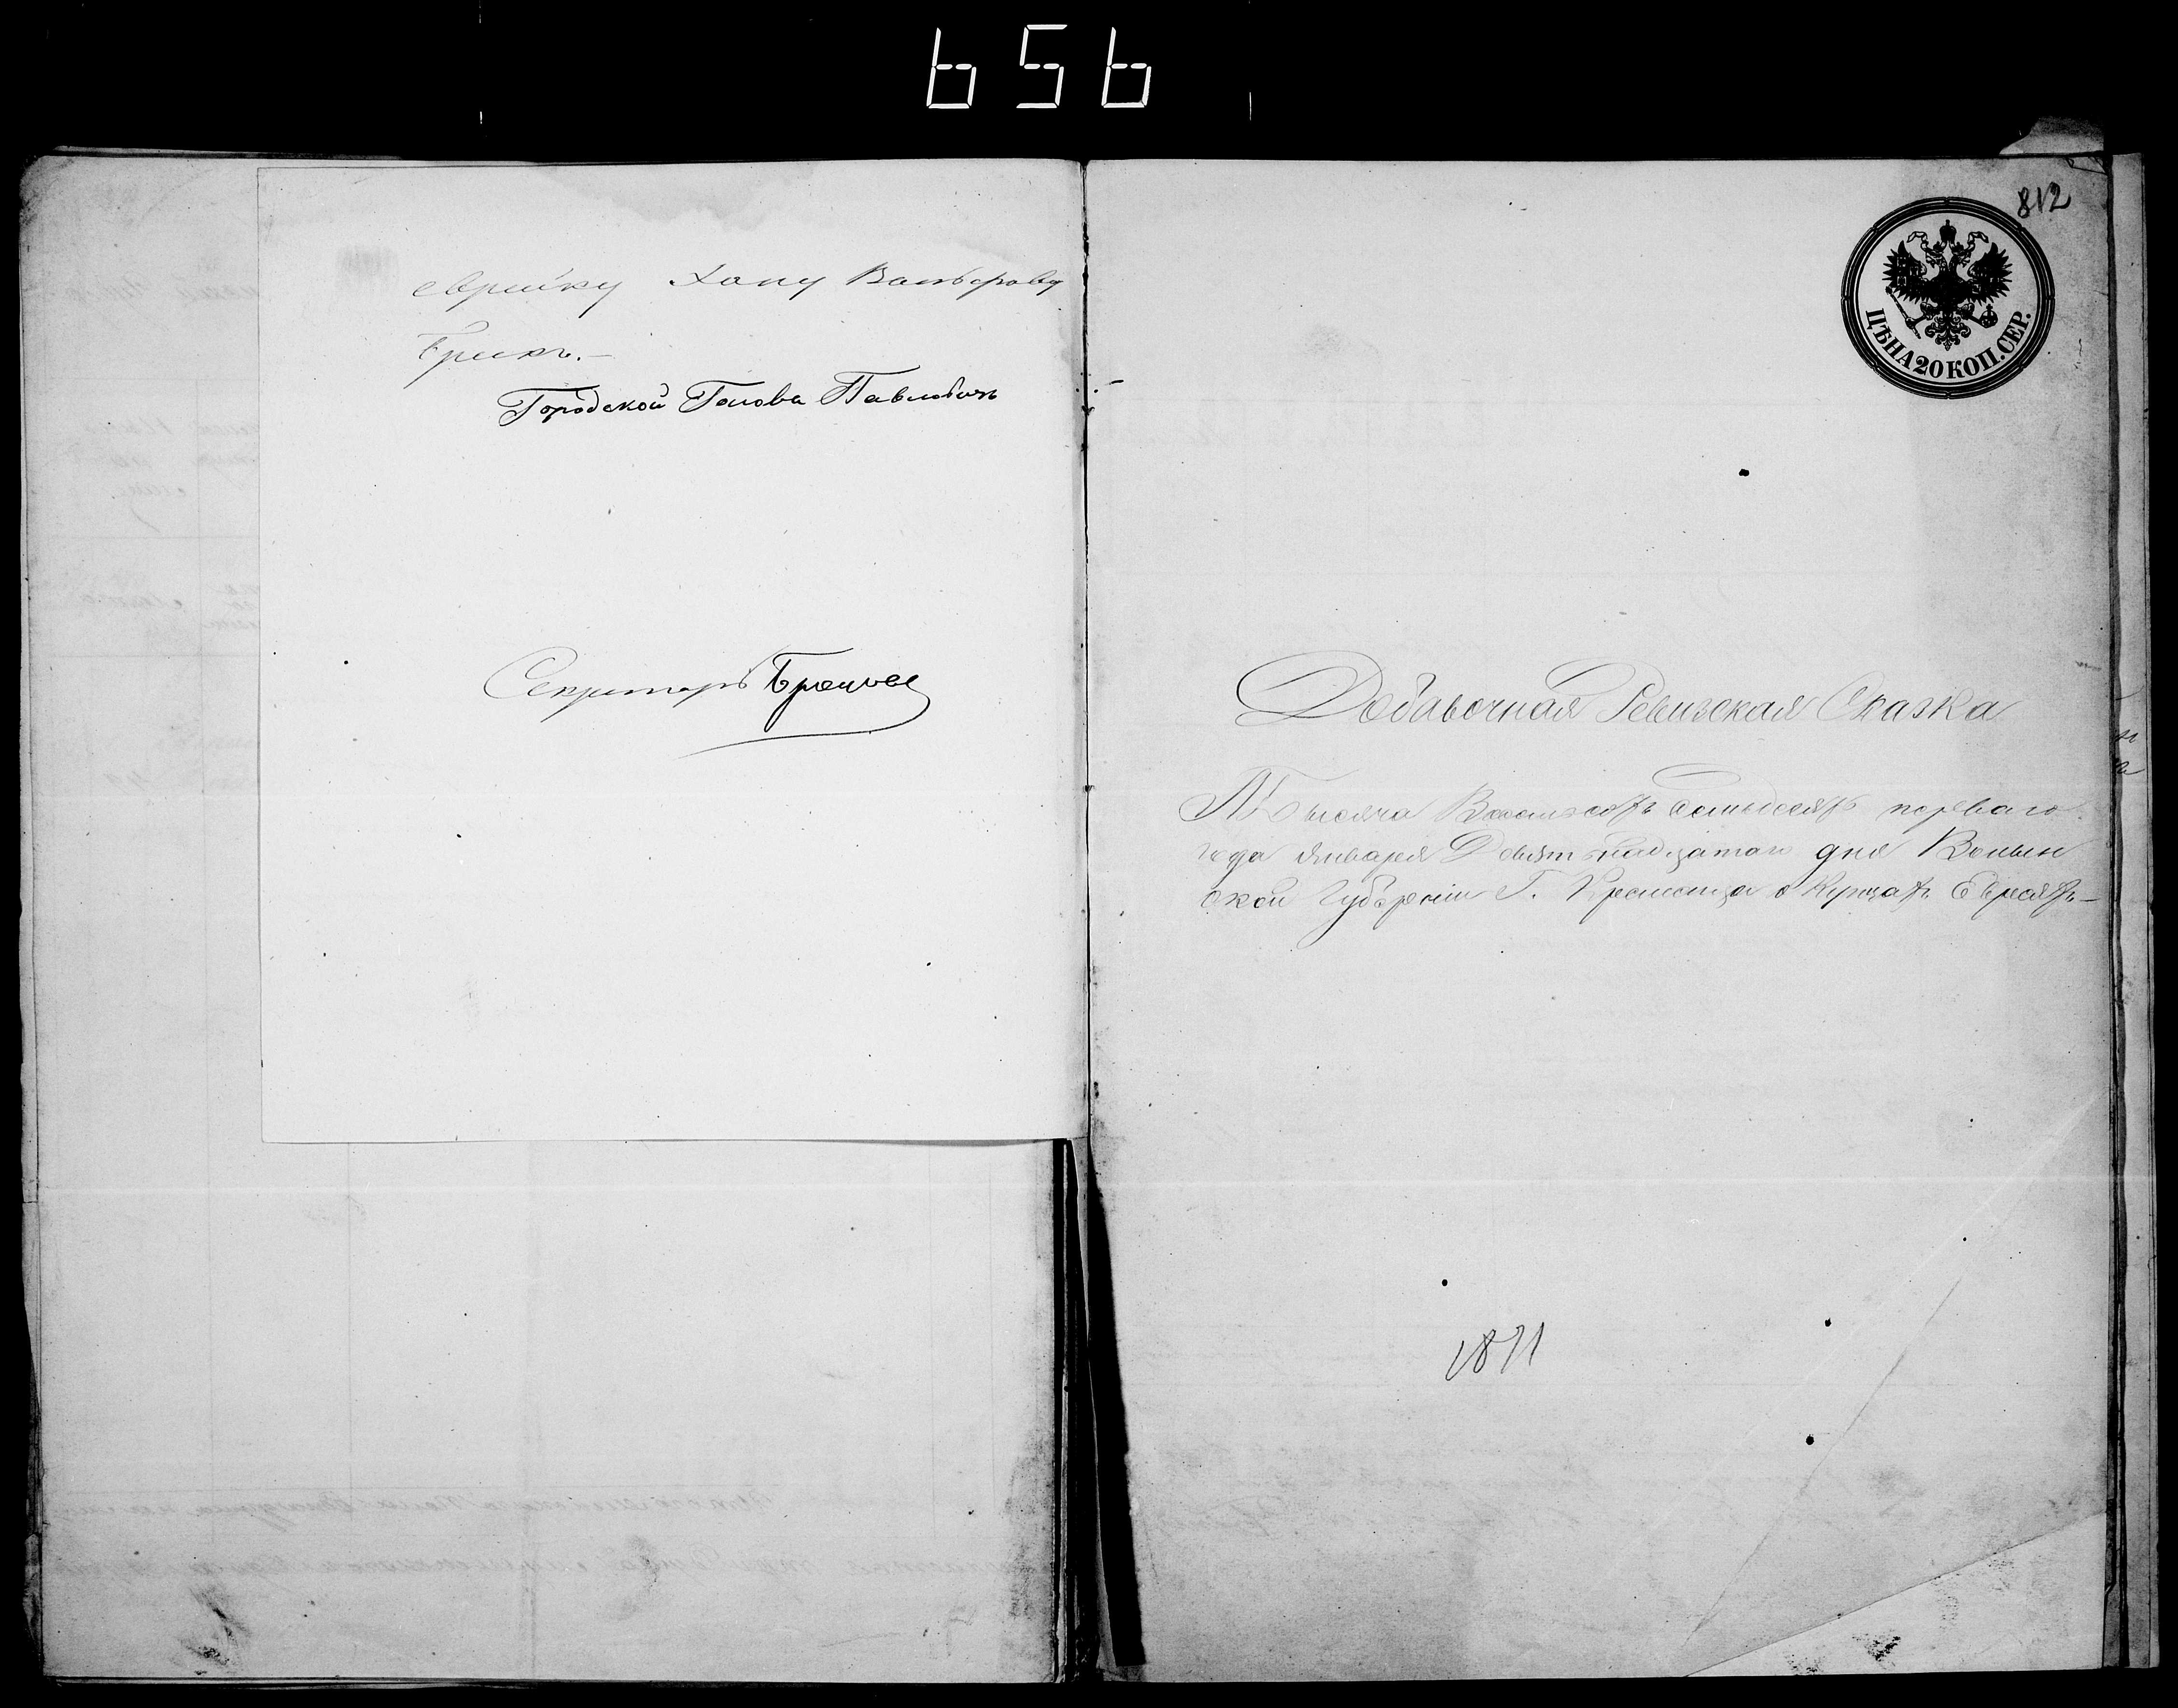 656
еврейку Хану Вольфову
Брикъ.—
Городской Голова Павловичъ
Секретарь
812
ЦѢНА 20 КОП. СЕР.
Добавочная Ревизская Сказка
Тысяча Восемсотъ Семьдесятъ перваго
года Января Девятнадцатаго дня Волын
ской Губерніи Г. Кременца о Купцахъ Евреяхъ—
1871